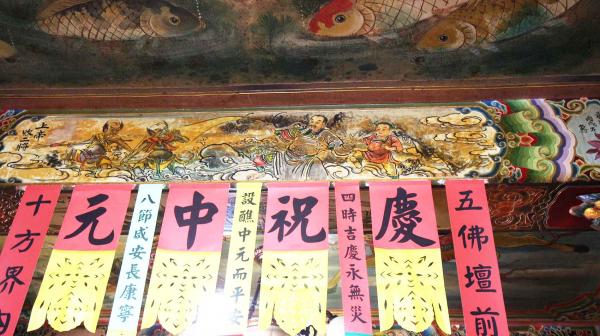 上帝收二將
五佛壇前
慶
四時吉慶永無災
祝
設醮中元而平安
中
八節咸安長康寧
元
十方界內